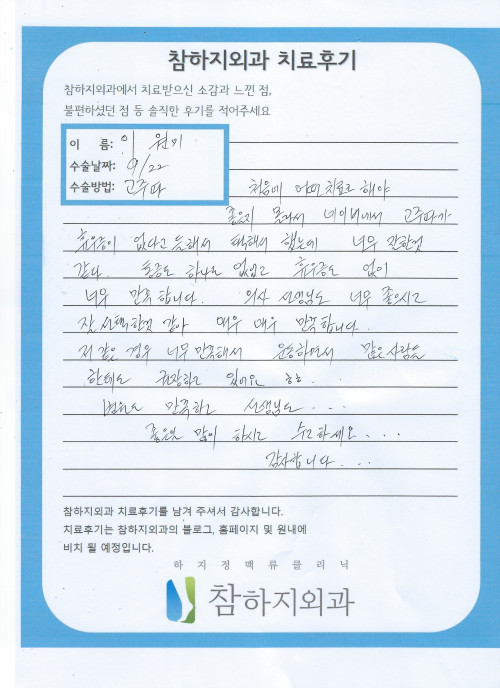 참하지외과 치료후기
참하지외과에서 치료받으신 소감과 느낀 점,
불편하셨던 점 등 솔직한 후기를 적어주세요
이 름: 이 원기
수술날짜: 9/22
수술방법: 고주파
처음에 어떤치료로 해야
좋을지 몰라서 네이버에서 고주파가
휴유증이 없다고 해서 했는데 너무 잘한것
같다. 통증도 하나도 없었고 휴유증도 없이
너무 만족합니다. 의사 선생님도 너무 좋으시고
잘 선택한것 같아 매우 매우 만족합니다.
저 같은 경우 너무만족해서 운동하면서 많은사람들
한테도 권장하고 있어요 ㅎㅎ..
병원도 만족하고 선생님도 ....
좋은일 많이 하시고 수고하세요....
감사합니다...
참하지외과 치료후기를 남겨 주셔서 감사합니다.
치료후기는 참하지외과의 블로그, 홈페이지 및 원내에
비치 될 예정입니다.
하지정맥류클리닉
참하지외과